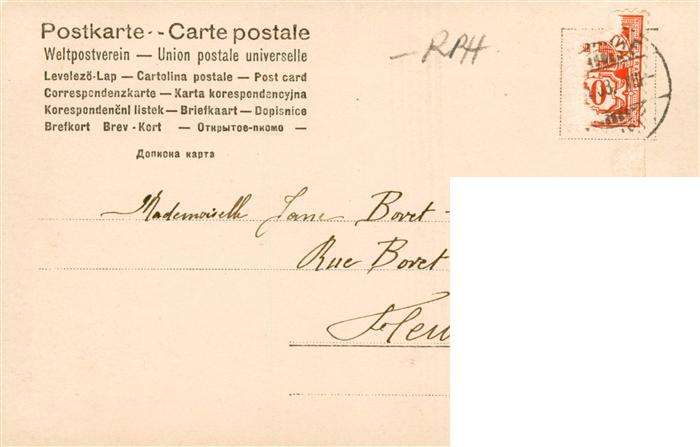 Postkarte -- Carte postale
Weltpostverein — Union postale universelle
Levelező-Lap — Cartolina postale — Post card
Correspondenzkarte — Karta korespondencyjna
Korespondenční listek — Briefkaart — Dopisnice
Brefkort Brev-Kort — Открытое-писмо —
Дописна карта
RPH
Mademoiselle Jane Bovet
Rue Bovet
Fleu